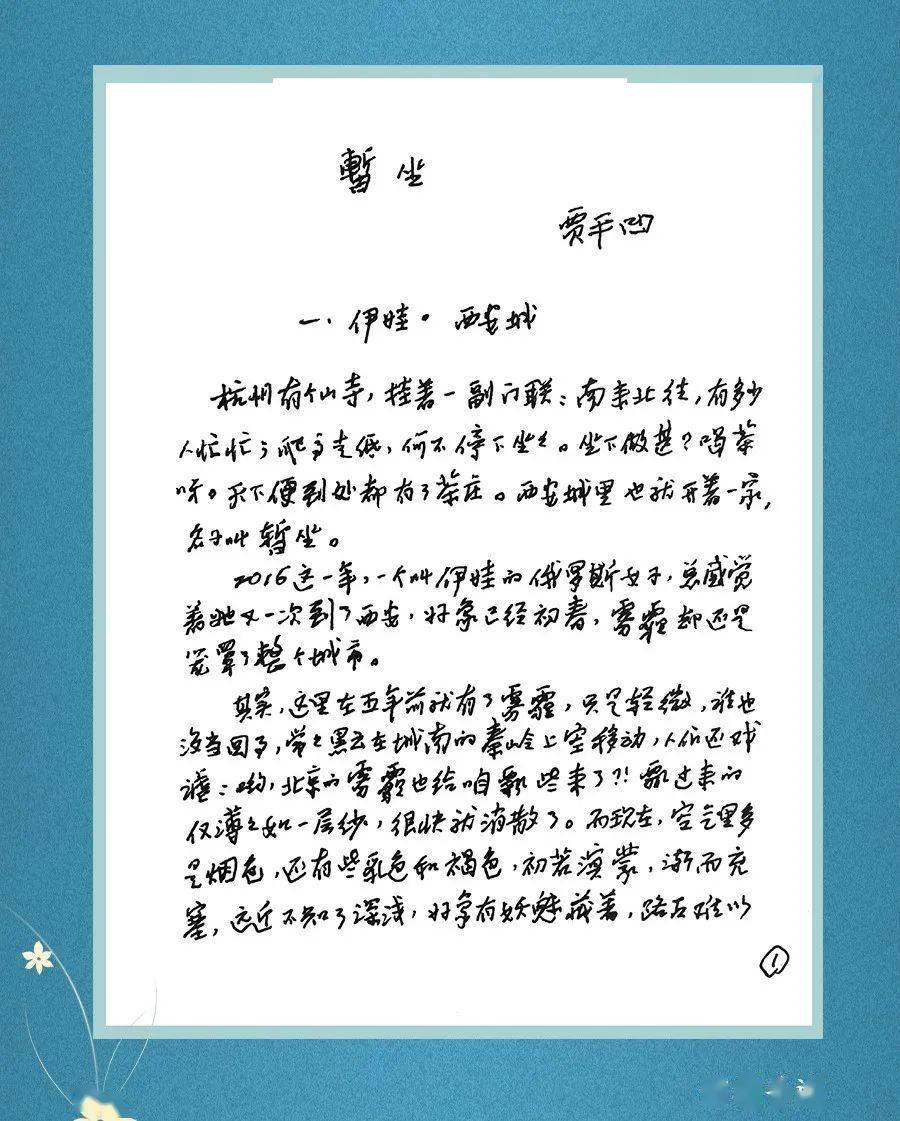 暫坐
贾平凹
一、伊娃。西安城
杭州有个山寺，挂着一副门联：南来北往，有多少
人忙忙；爬高走低，何不停下坐坐。坐下做甚？喝茶
呀。天下便到处都有了茶庄。西安城里也就开着一家，
名字叫暫坐。
2016这一年，一个叫伊娃的俄罗斯女子，总感觉
着她又一次到了西安，好象已经初春，雾霾却还是
笼罩了整个城市。
其实，这里在五年前就有了雾霾，只是轻微，谁也
没当回事，常常黑云在城南的秦岭上空移动，人们还戏
谑：哟，北京的雾霾也给咱飘些来了?! 飘过来的
仅薄薄如一层纱，很快就消散了。而现在，空气里多
是烟色，还有些乳色和褐色，初若溟蒙，渐而充
塞，远近不知了深浅，好象有妖魅藏着，路口难以
1